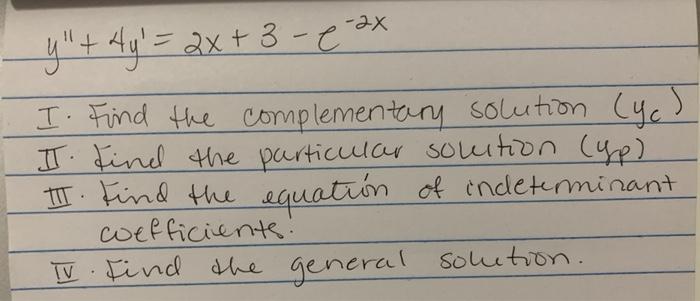 y" + 4y' = 2x + 3 - e^-2x
I. Find the complementary solution (yc)
II. Find the particular solution (yp)
III. Find the equation of indeterminant
coefficients.
IV. Find the general solution.